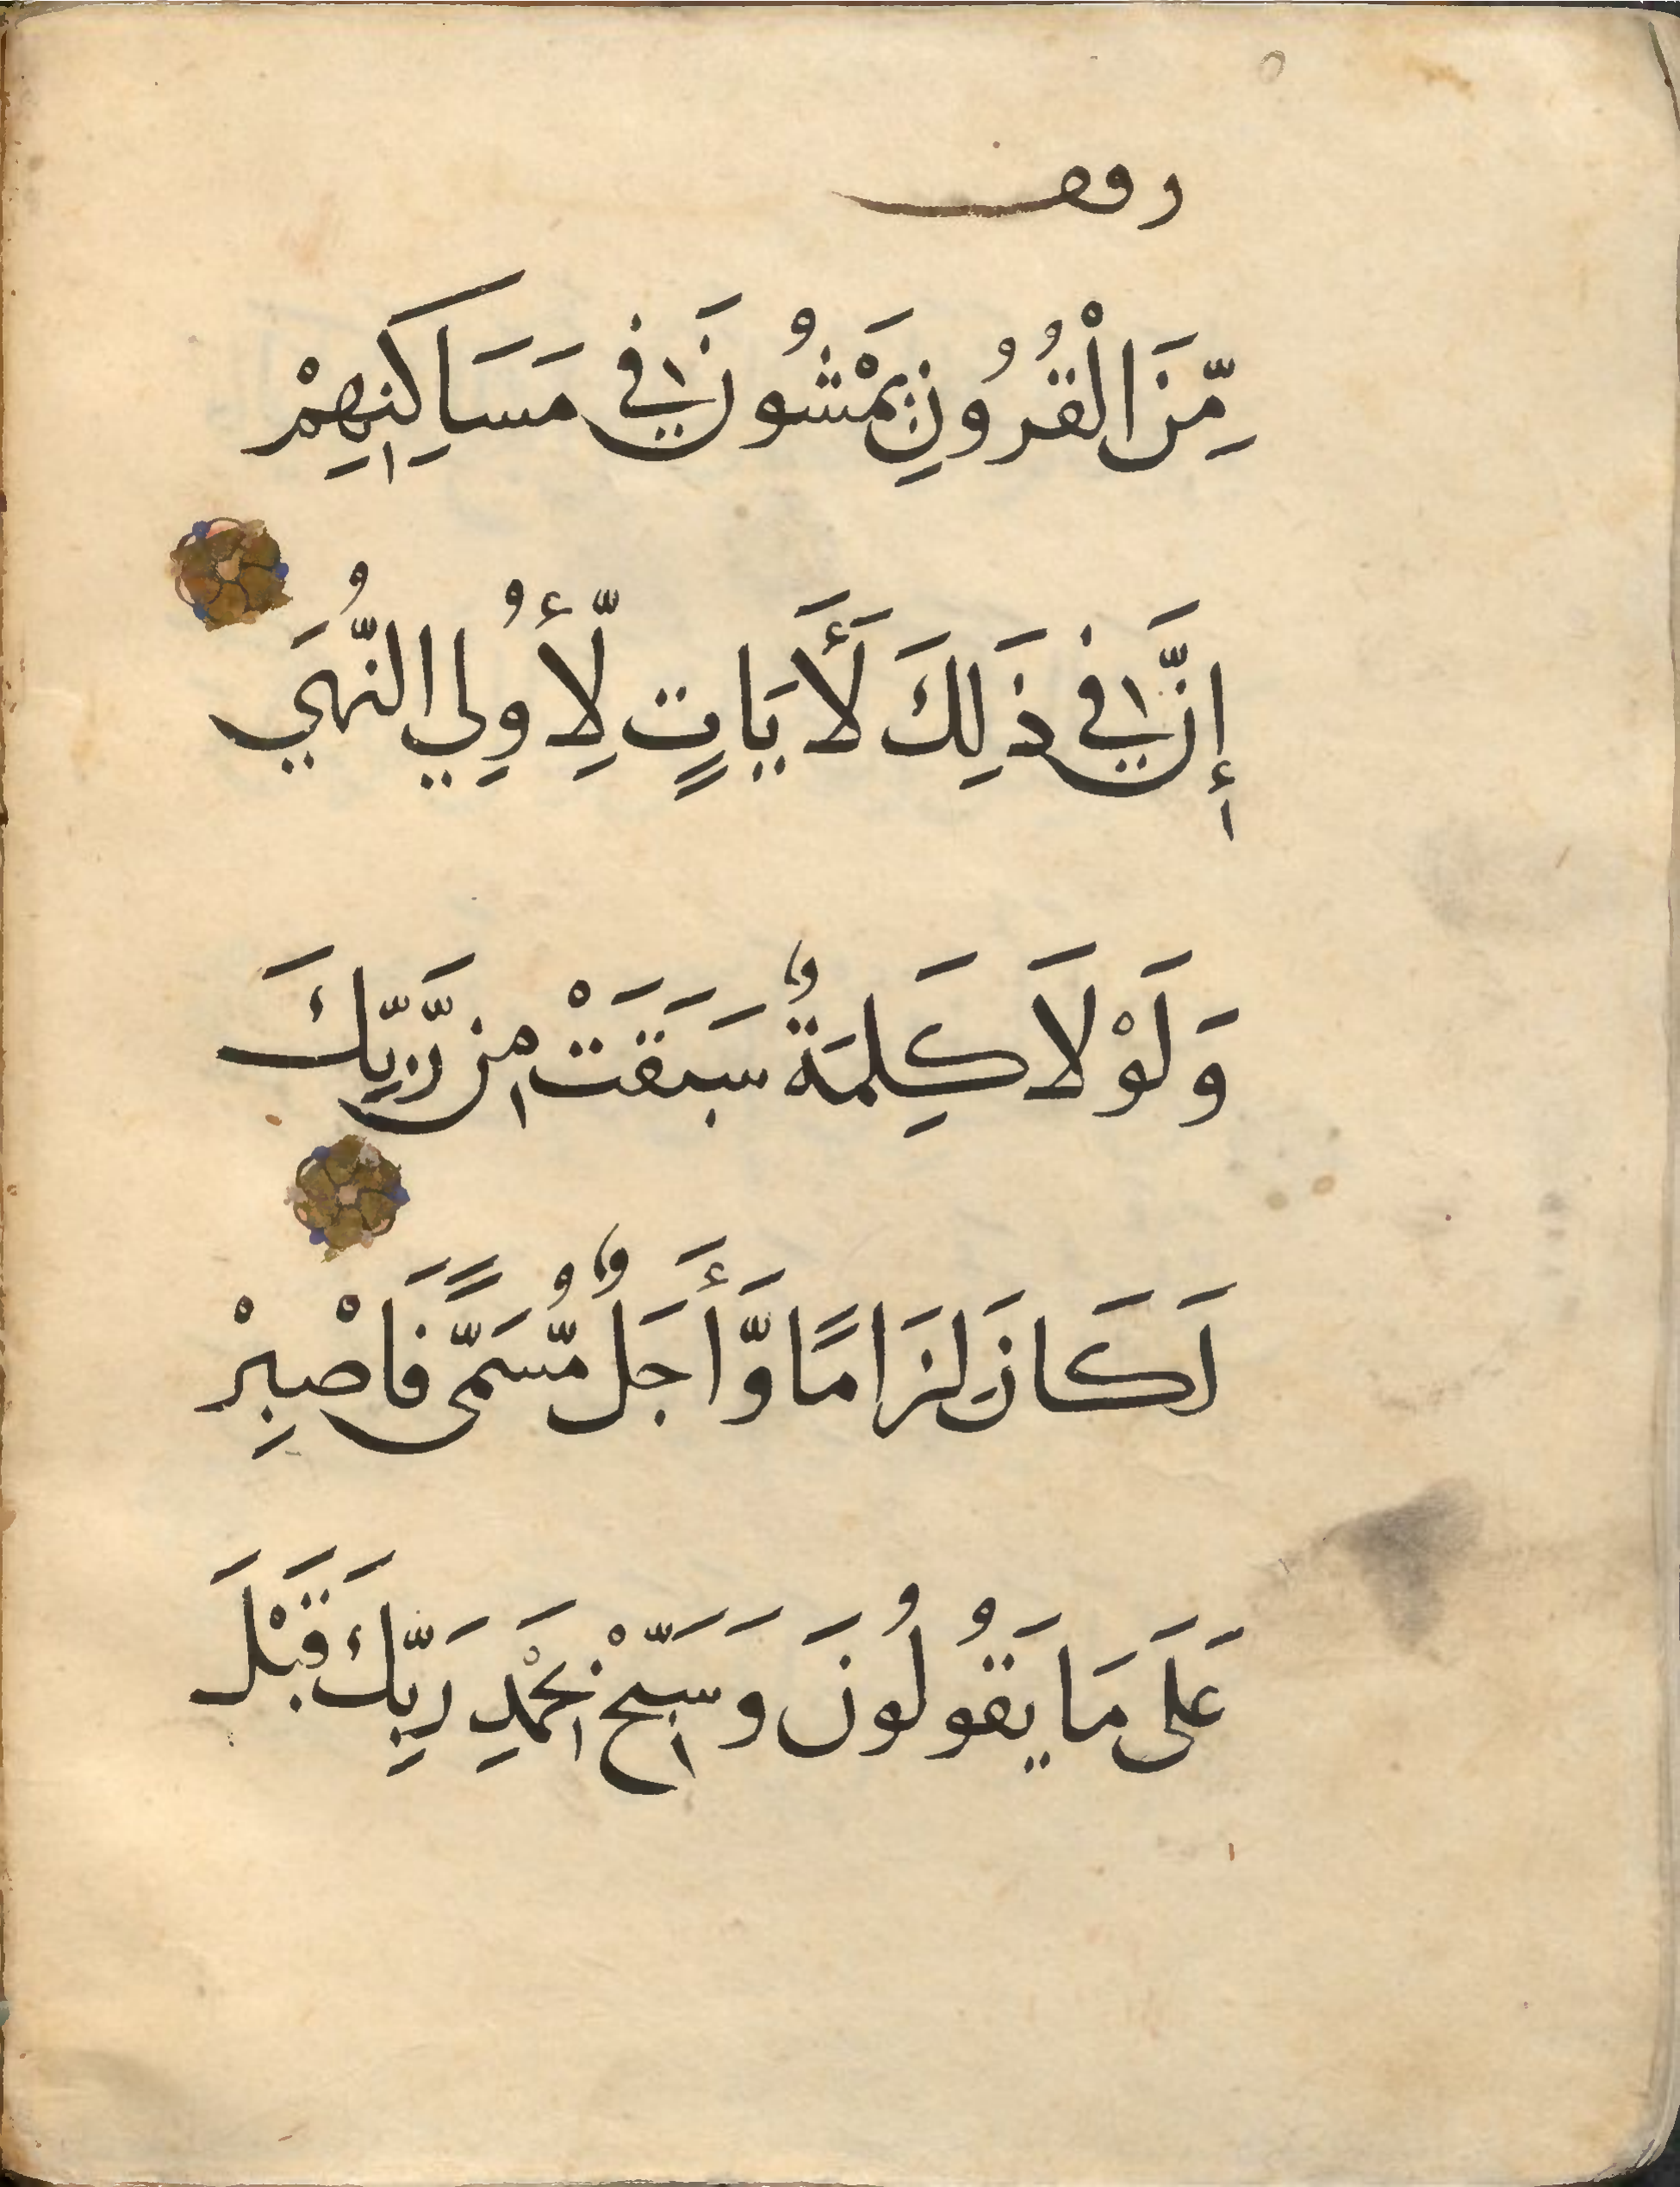 وقف
مِّنَ الْقُرُونِ يَمْشُونَ فِي مَسَاكِنِهِمْ
إِنَّ فِي ذَلِكَ لَأَيَاتٍ لِّأُولِي النُّهَي
وَلَوْلَا كَلِمَةٌ سَبَقَتْ مِن رَّبِّكَ
لَكَانَ لِزَامًا وَّأَجَلٌ مُّسَمًّى فَاصْبِرْ
عَلَى مَا يَقُولُونَ وَسَبِّحْ بِحَمْدِ رَبِّكَ قَبْلَ